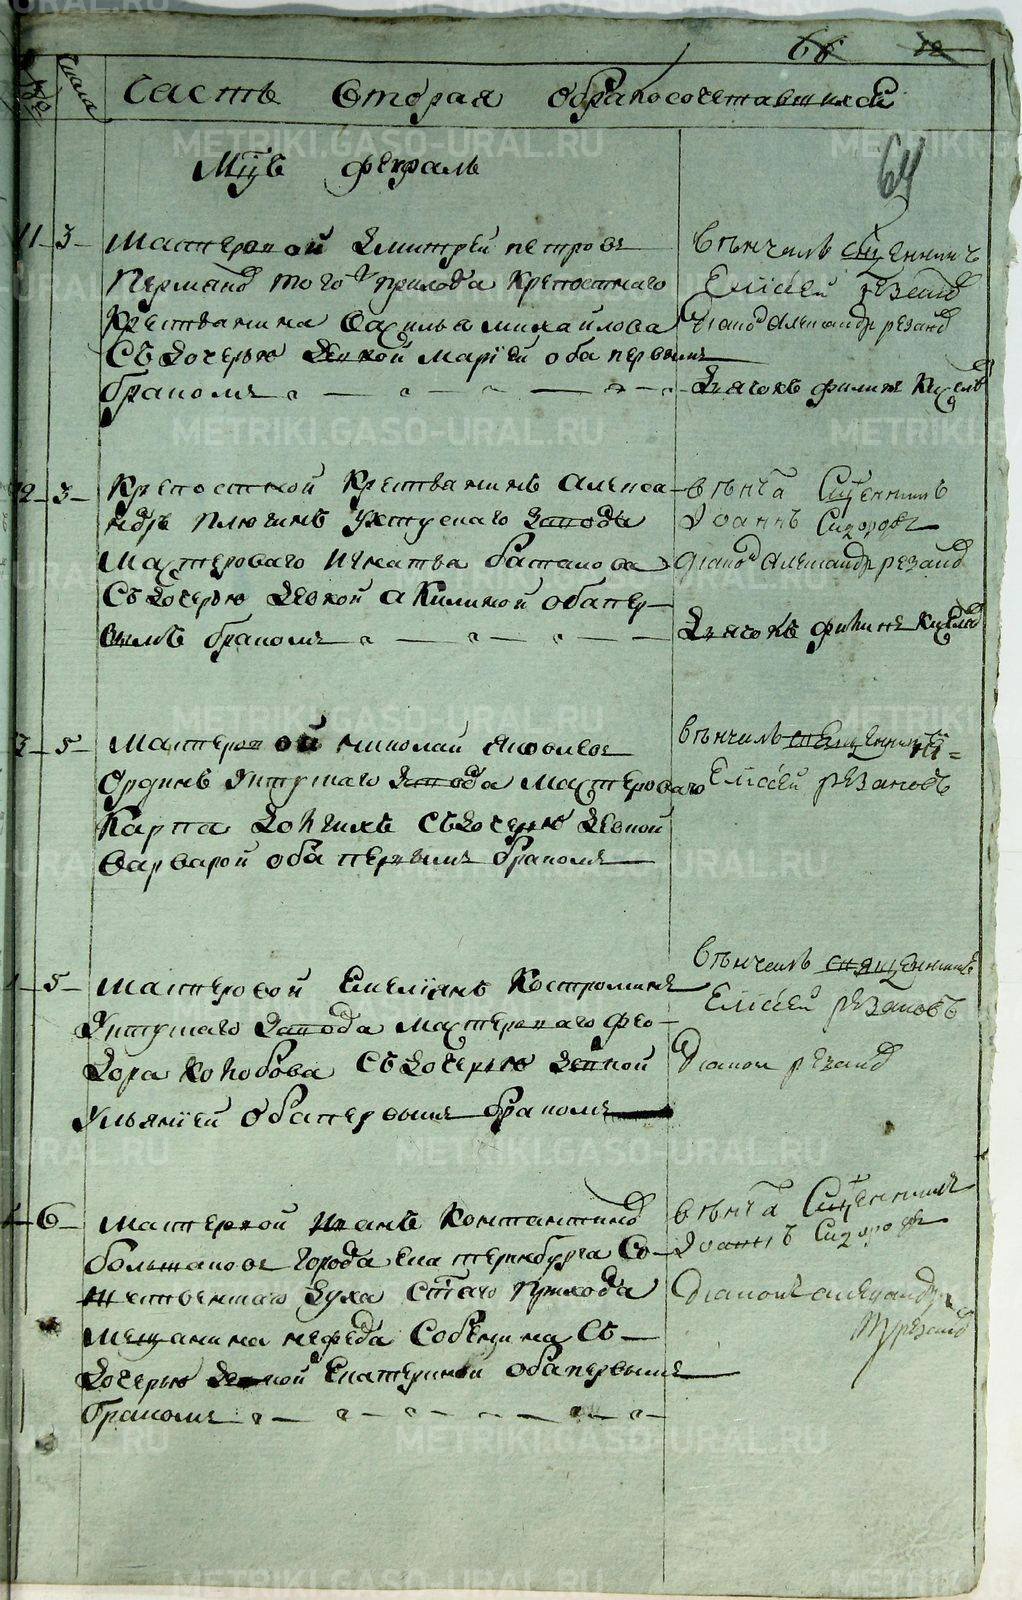 66 72
№ Числа Часть Вторая обракосочетавшихся
64
Мцъ февраль
11 3 Мастеровой Дмитрей петровъ
того прихода крепостнаго
крестьянина Василья михайлова
Съ дочерью девкой Марией оба первымъ
бракомъ
Вѣнчилъ сщенникъ
Елисей рѣзанов
Диакон Александр резанов
Дьячокъ филипъ
12 3 Крепостной Крестьянинъ Алекса
ндръ Плюгинъ Уктускаго завода
Мастероваго Игнатья
Съ дочерью девкой акилиной обапер
вымъ бракомъ
вѣнча Сщенникъ
Иоаннъ Сидоровъ
диакон Александр резанов
Дьячокъ филипъ
3 5 Мастеровой николай яковлевъ
Уктускаго завода Мастероваго
Карпа съдочерью девкой
Варварой оба первымъ бракомъ
вѣнчилъ священникъ
Елисей рѣзановъ
5 мастеровой Емелиянъ Костроминъ
Уктускаго завода мастероваго фео
дора Колобова Съ дочерью девкой
Ульянией обапервымъ бракомъ
Вѣнчилъ священникъ
Елисей рѣзановъ
Диакон резанов
6 мастеровой Иванъ Константинов
большаковъ города екатеринбурга Со
шественскаго духа Стаго прихода
мещанина нефеда Собенина Съ
дочерью девкой Екатериной обапервымъ
бракомъ
вѣнча Сщенникъ
Иоаннъ Сидоровъ
Диаконъ александръ
резанов
METRIKI.GASO-URAL.RU